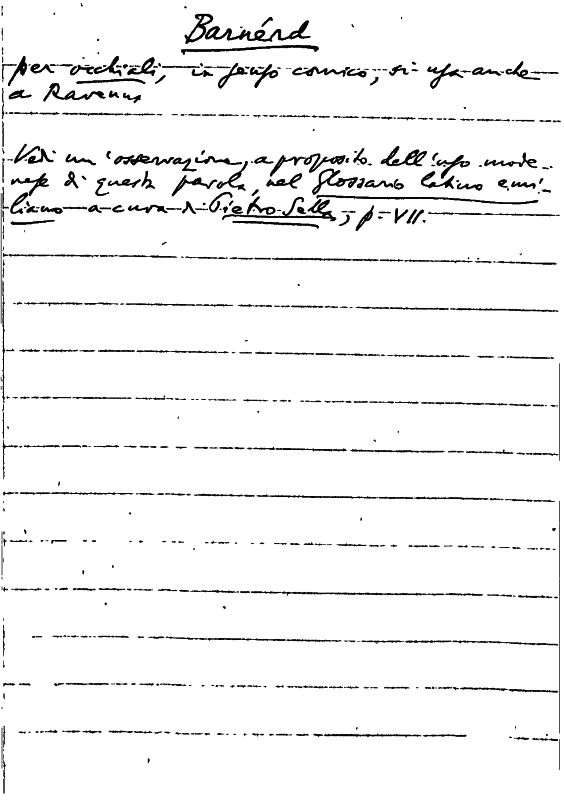 Barnérd
per occhiali, in senso comico, si usa anche
a Ravenna
Vedi un'osservazione, a proposito dell'uso mode-
nese di questa parola, nel Glossario latino emi-
liano a cura di Pietro Sella, p. VII.